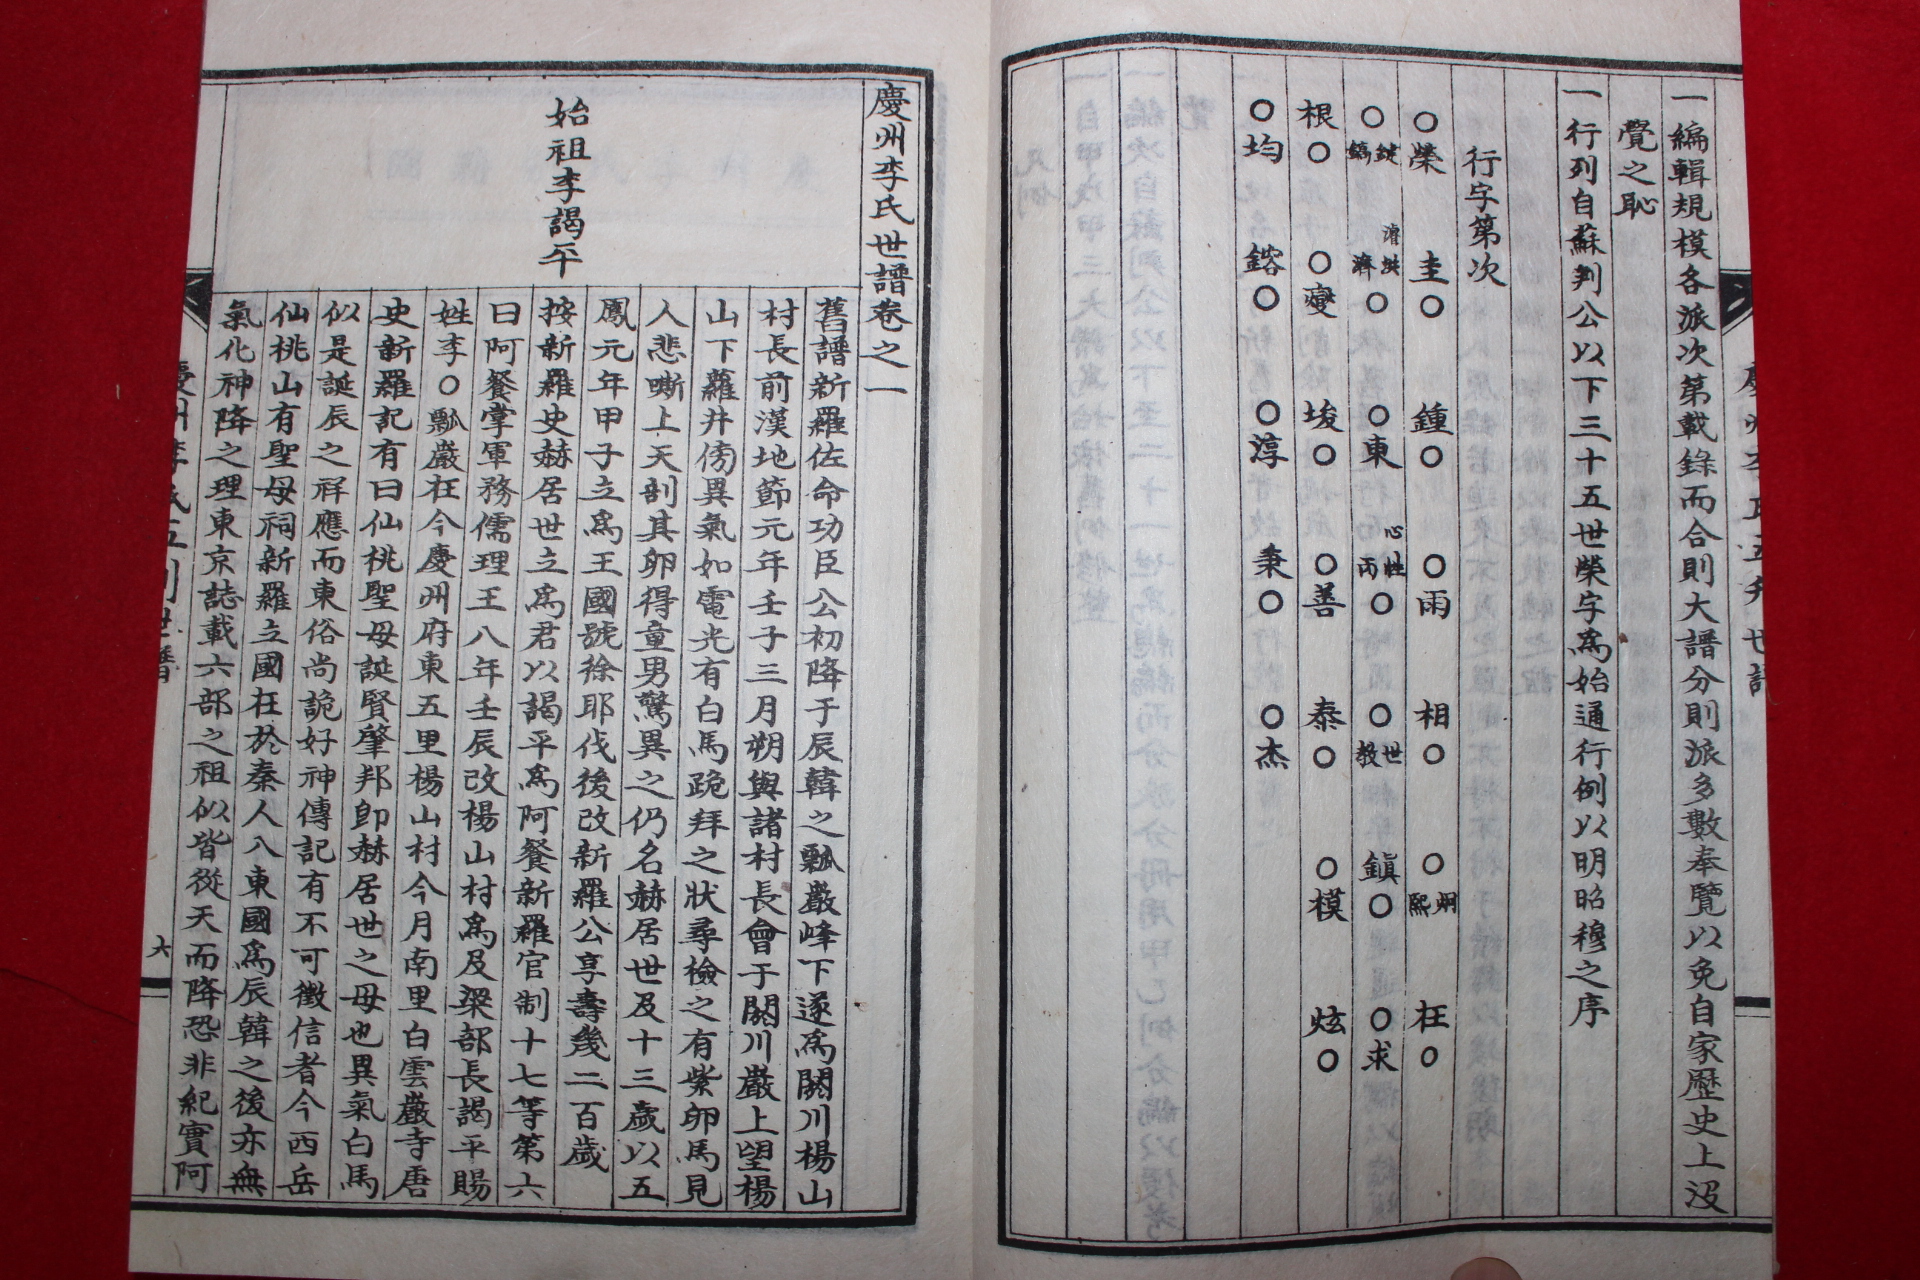 一編輯規模各派次第載錄而合則大譜分則派多數奉覽以免自家歷史上沒
覺之恥
一行列自蘇判公以下三十五世榮字爲始通行例以明昭穆之序
行字第次
○榮 圭○ 鍾○ ○雨 相○ ○熙炯 枉○
○鎬鍵 濟洪濬○ ○東 丙性心○ ○敎世 鎭○ ○求
根○ ○燮 埈○ ○善 泰○ ○模 炫○
○均 鎔○ ○淳 秉○ ○杰
慶州李氏世譜卷之一
始祖李謁平
舊譜新羅佐命功臣公初降于辰韓之瓢巖峰下遂爲閼川楊山
村長前漢地節元年壬子三月朔與諸村長會于閼川巖上望楊
山下蘿井傍異氣如電光有白馬跪拜之狀尋檢之有紫卵馬見
人悲嘶上天剖其卵得童男驚異之仍名赫居世及十三歲以五
鳳元年甲子立爲王國號徐耶伐後改新羅公享壽幾二百歲
按新羅史赫居世立爲君以謁平爲阿餐新羅官制十七等第六
曰阿餐掌軍務儒理王八年壬辰改楊山村爲及梁部長謁平賜
姓李○瓢巖在今慶州府東五里楊山村今月南里白雲巖寺唐
史新羅記有曰仙桃聖母誕賢肇邦卽赫居世之母也異氣白馬
似是誕辰之祥應而東俗尚詭好神傳記有不可徵信者今西岳
仙桃山有聖母祠新羅立國在於秦人入東國爲辰韓之後亦無
氣化神降之理東京誌載六部之祖似皆從天而降恐非紀實阿
慶州李氏五刊世譜
六